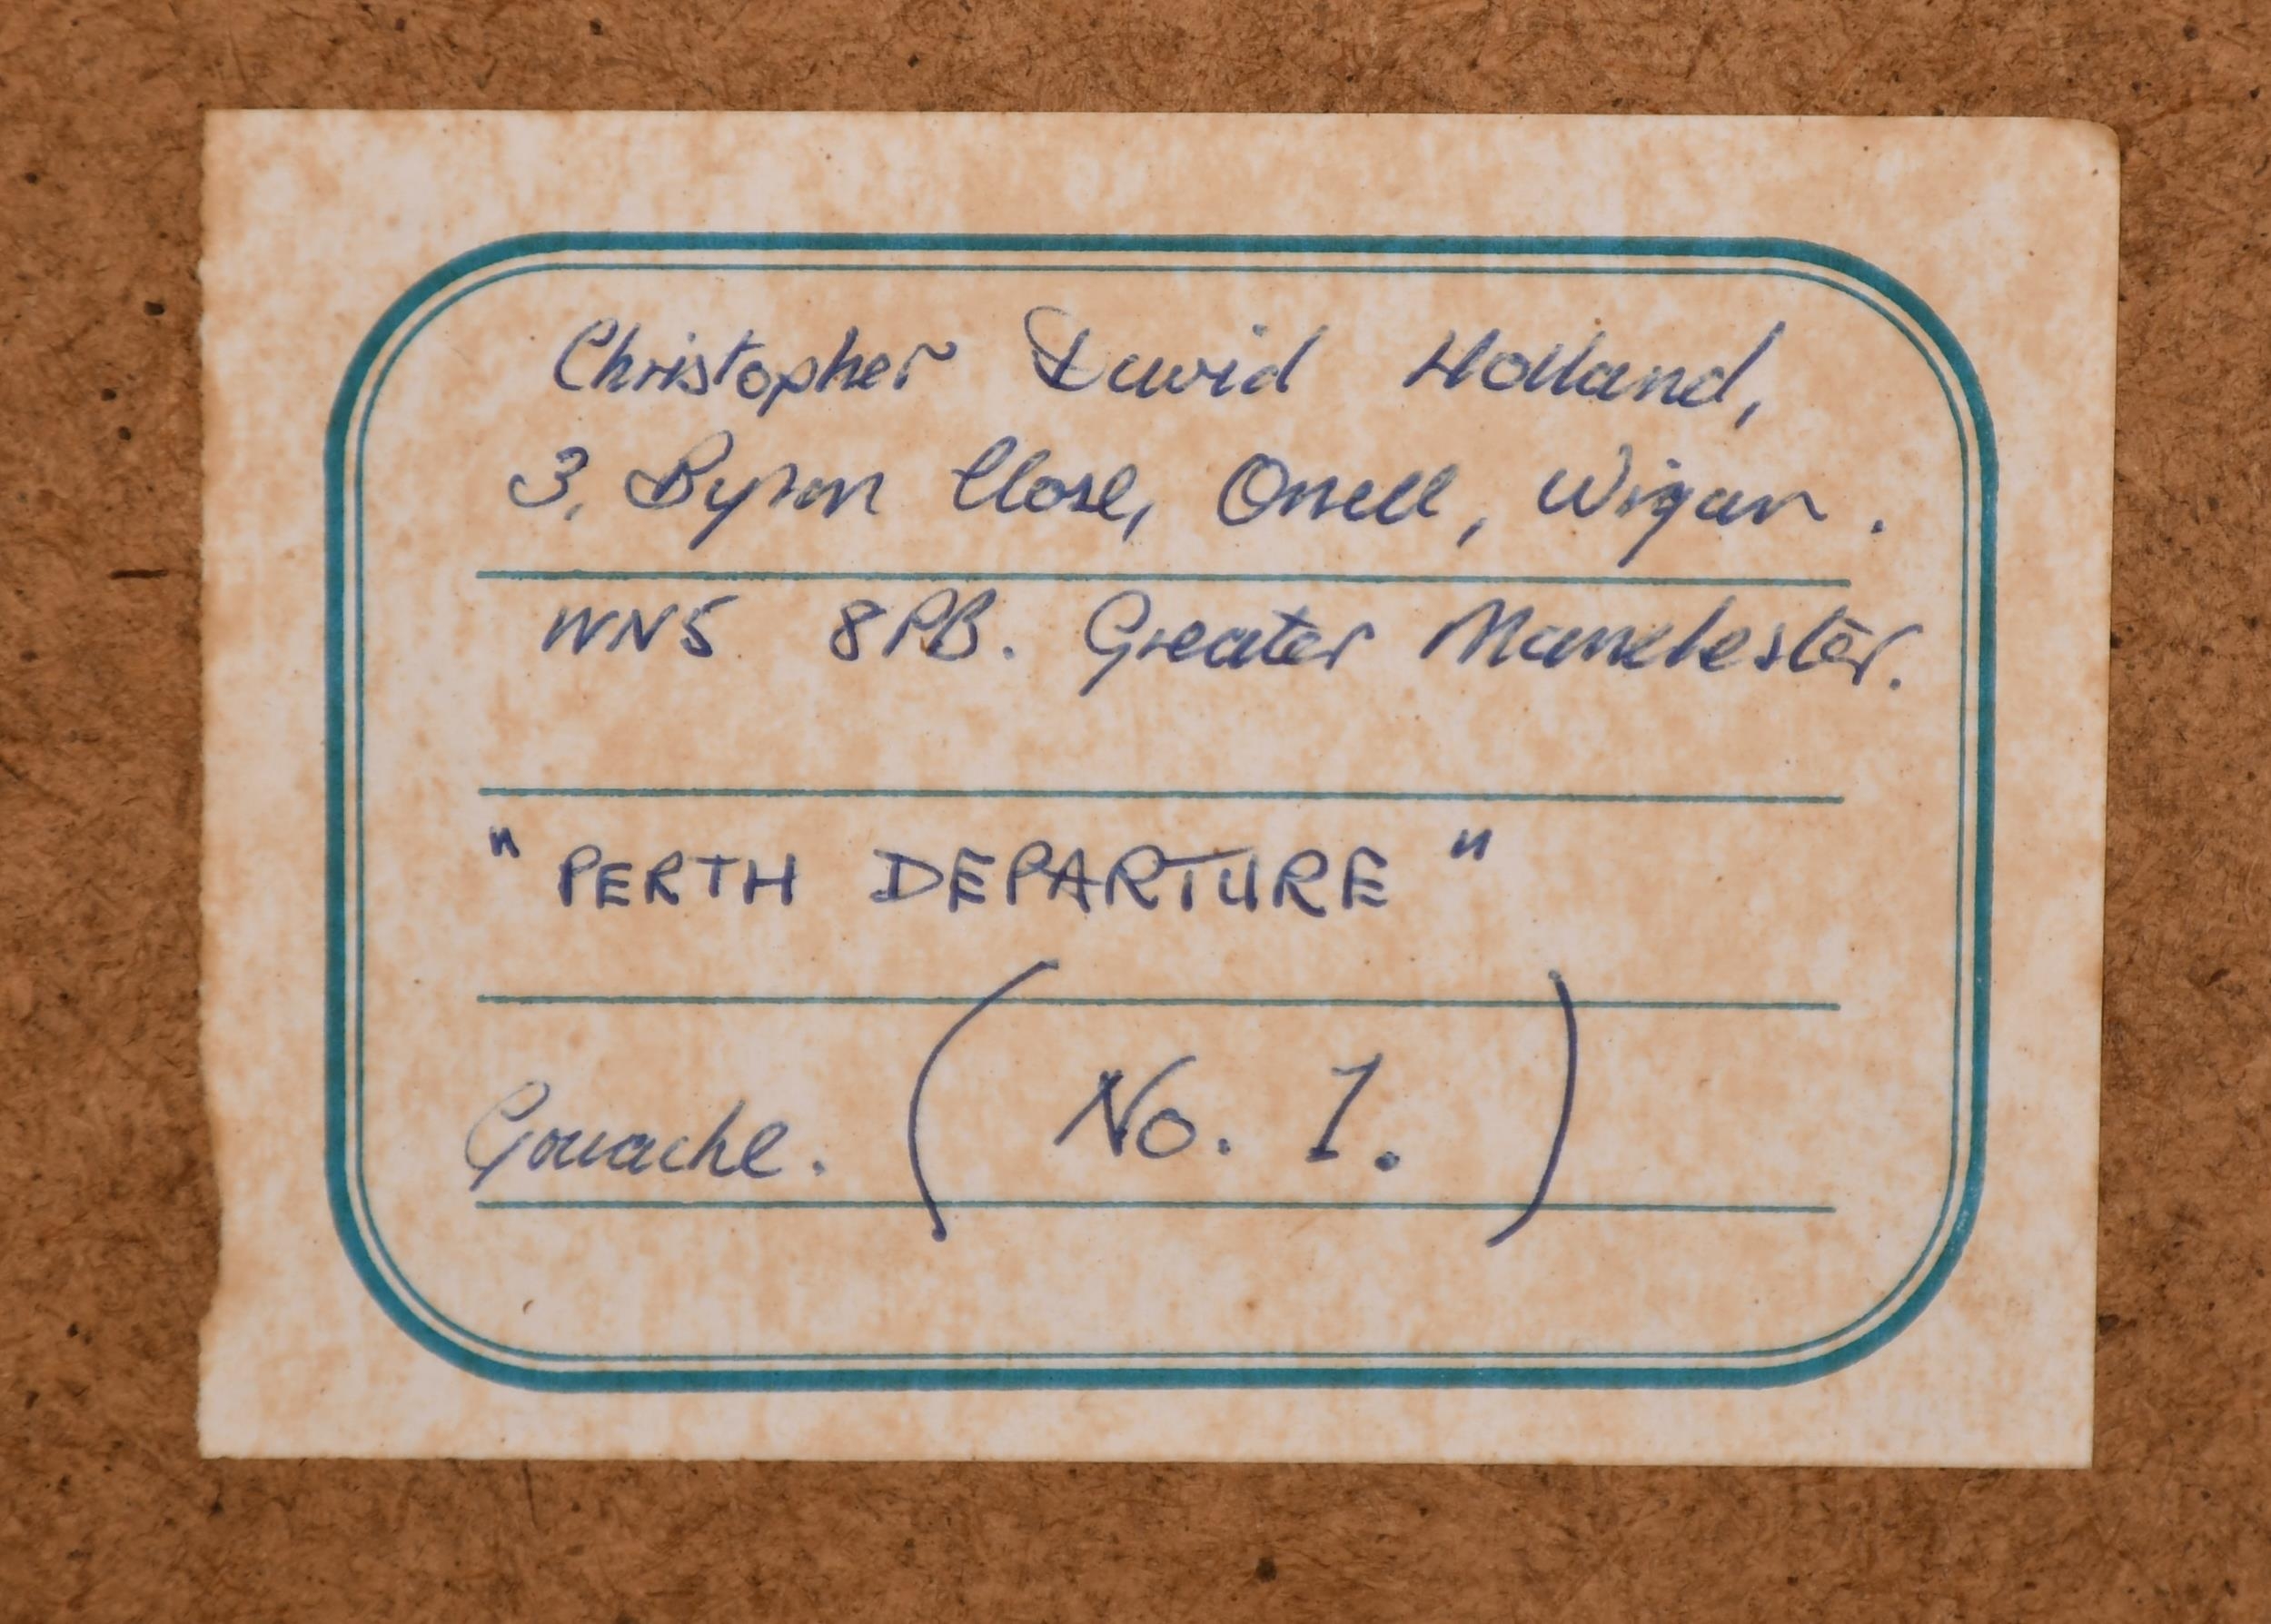 Christopher David Holland,
3, Byron Close, Orrell, Wigan.
WN5 8PB. Greater Manchester.
"PERTH DEPARTURE"
Gouache. (No. 1.)